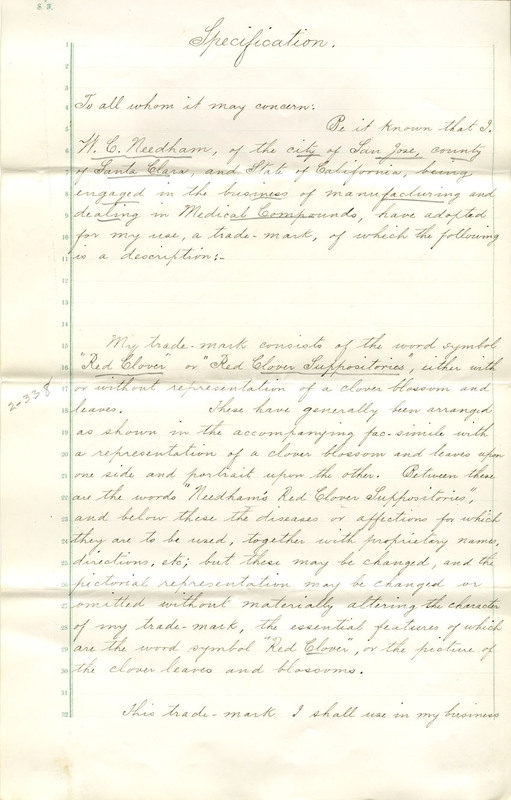 Specification.
To all whom it may concern:
Be it known that I.
W. C. Needham, of the city of San Jose, county
of Santa Clara, and State of California, being
engaged in the business of manufacturing and
dealing in Medical Compounds, have adopted
for my use, a trade-mark, of which the following
is a description:-
My trade-mark consists of the word symbol
"Red Clover" or "Red Clover Suppositories", either with
or without representation of a clover blossom and
leaves. These have generally been arranged
as shown in the accompanying fac-simile with
a representation of a clover blossom and leaves upon
one side and portrait upon the other. Between these
are the words "Needham's Red Clover Suppositories",
and below these the diseases or affections for which
they are to be used, together with proprietary names,
directions, etc; but these may be changed, and the
pictorial representation may be changed or
omitted without materially altering the character
of my trade-mark, the essential features of which
are the word symbol "Red Clover", or the picture of
the clover leaves and blossoms.
This trade-mark I shall use in my business